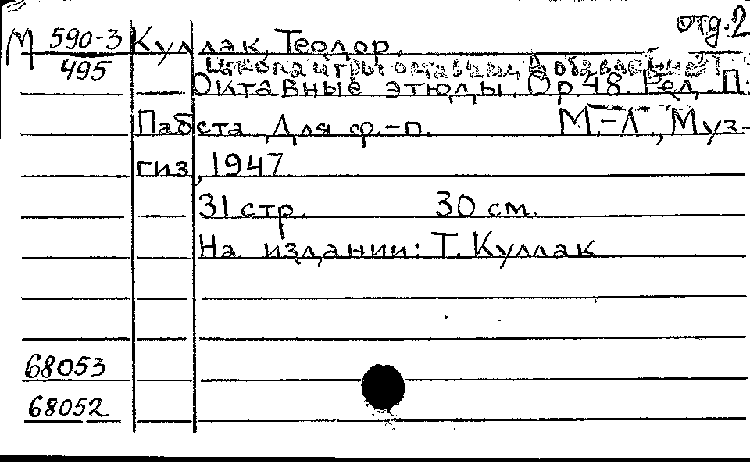 отд. 2
М 590-3 Куллак, Теодор.
495
Школа игры октавами. Добавление I.
Октавные этюды. Op. 48. Ред. П.
Пабста. Для ф.-п. М.-Л., Муз-
гиз, 1947
31 стр. 30 см.
На издании: Т. Куллак
68053
68052